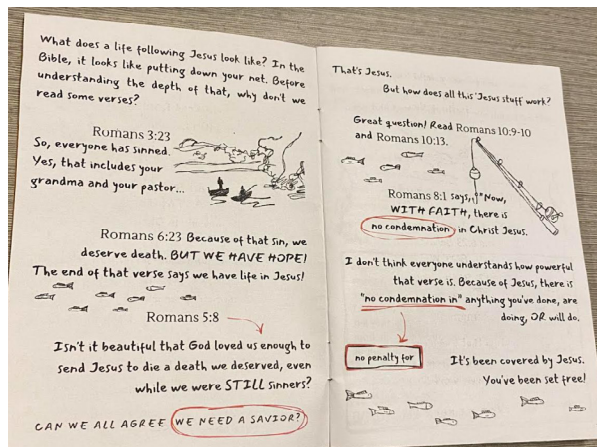 What does a life following Jesus look like? In the
Bible, it looks like putting down your net. Before
understanding the depth of that, why don't we
read some verses?
Romans 3:23
So, everyone has sinned.
Yes, that includes your
grandma and your pastor...
Romans 6:23 Because of that sin, we
deserve death. BUT WE HAVE HOPE!
The end of that verse says we have life in Jesus!
Romans 5:8
Isn't it beautiful that God loved us enough to
send Jesus to die a death we deserved, even
while we were STILL sinners?
CAN WE ALL AGREE WE NEED A SAVIOR?
That's Jesus.
But how does all this 'Jesus stuff' work?
Great question! Read Romans 10:9-10
and Romans 10:13.
Romans 8:1 says, "Now,
WITH FAITH, there is
no condemnation in Christ Jesus.
I don't think everyone understands how powerful
that verse is. Because of Jesus, there is
"no condemnation in" anything you've done, are
doing, OR will do.
no penalty for
It's been covered by Jesus.
You've been set free!